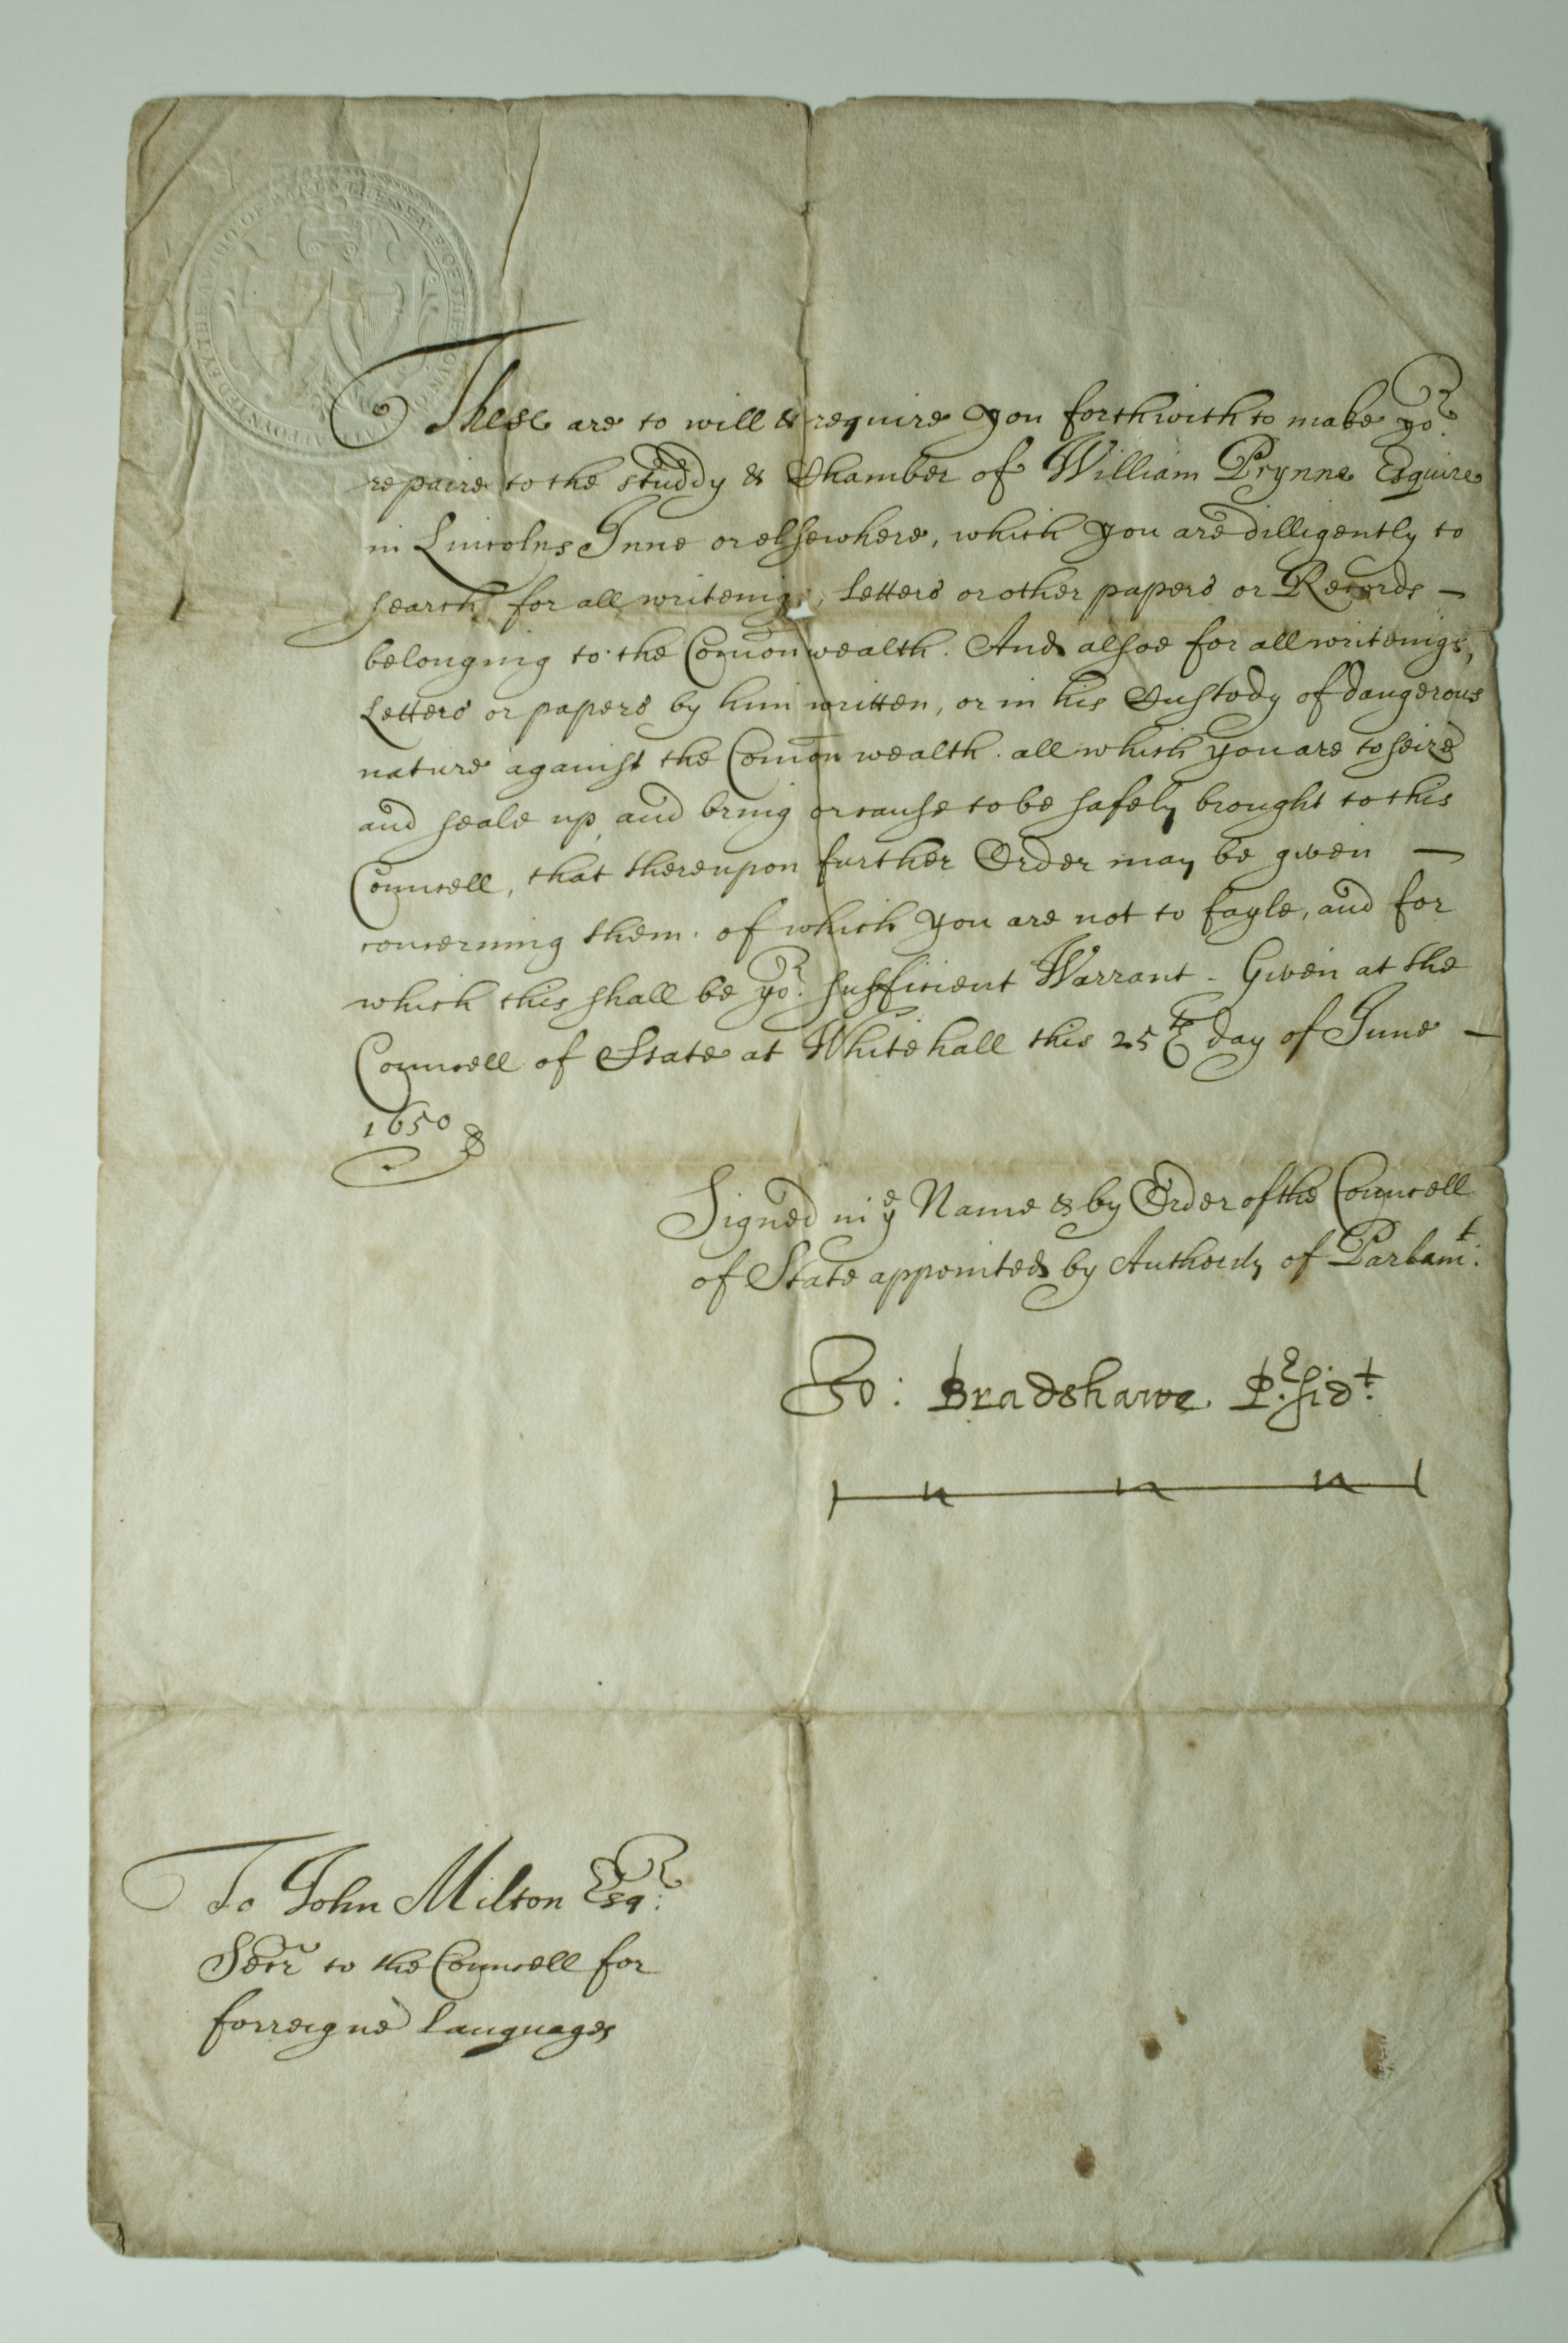 These are to will & require you forthwith to make yo.r
repaire to the studdy & Chamber of William Prynne Esquire
in Lincolns Inne or elsewhere, which you are dilligently to
search for all writeings, Letters or other papers or Records —
belonging to the Com̄onwealth. And alsoe for all writeings,
Letters or papers by him written, or in his Custody of dangerous
nature against the Com̄on wealth. all which you are to seize
and seale up, and bring or cause to be safely brought to this
Councell, that thereupon further Order may be given —
concerning them. of which you are not to fayle, and for
which this shall be yo.r sufficient Warrant - Given at the
Councell of State at Whitehall this 25th day of June —
1650
Signed in ye Name & by Order of the Councell
of State appointed by Authority of Parliam.t
Jo: Bradshawe P.rsid.t
To John Milton Esq.r
Secr to the Councell for
forreigne Languages